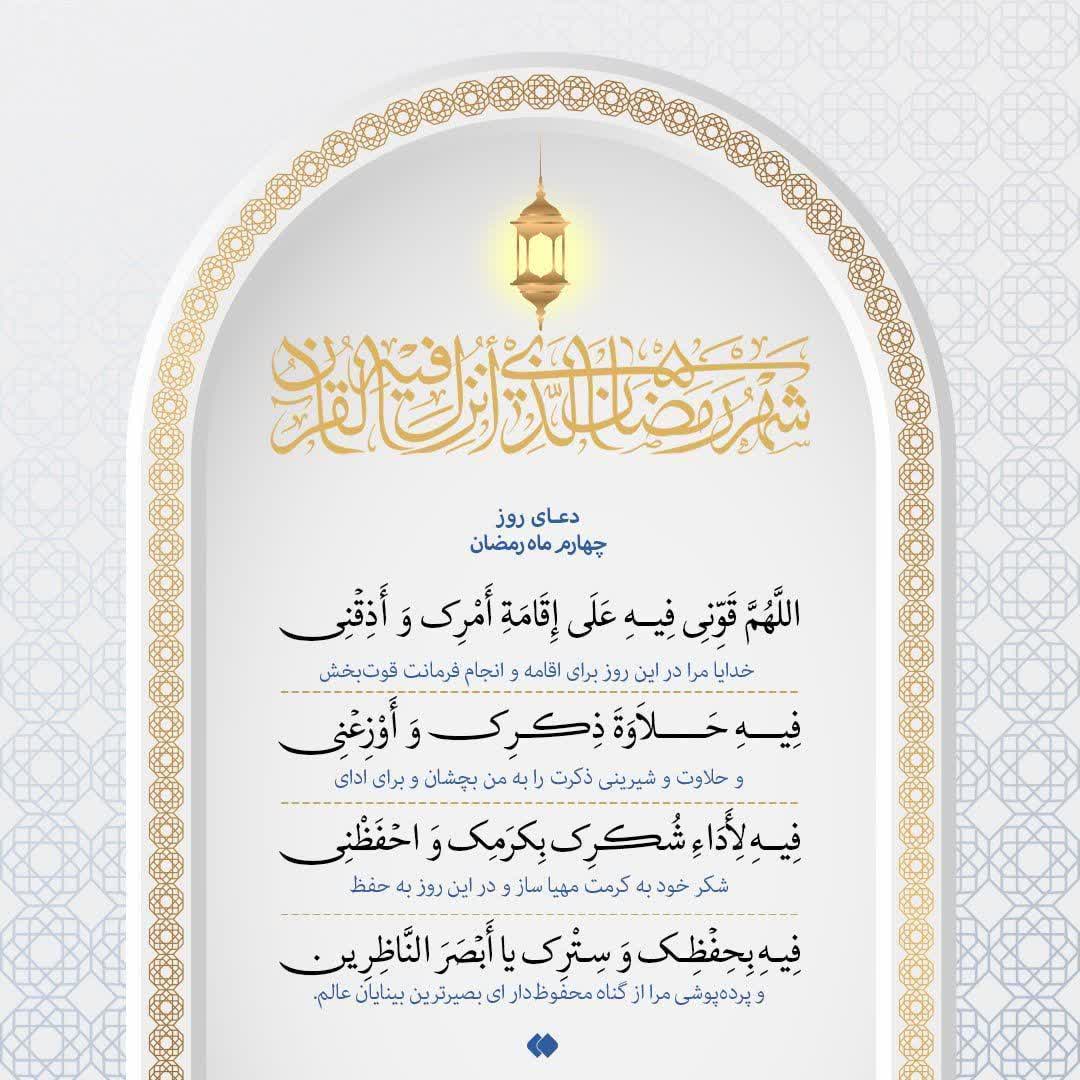 شَهْرُ رَمَضَانَ الَّذِي أُنْزِلَ فِيهِ الْقُرْآنُ
دعـای روز
چهارم ماه رمضان
اللَّهُمَّ قَوِّنِی فِیـهِ عَلَی إِقَامَةِ أَمْرِک وَ أَذِقْنِی
خدایا مرا در این روز برای اقامه و انجام فرمانت قوت‌بخش
فِیـهِ حَـلاَوَةَ ذِکْـرِک وَ أَوْزِعْنِی
و حلاوت و شیرینی ذکرت را به من بچشان و برای ادای
فِیـهِ لِأَدَاءِ شُکْـرِک بِکَرَمِک وَ احْفَظْنِی
شکر خود به کرمت مهیا ساز و در این روز به حفظ
فِیـهِ بِحِفْظِـک وَ سِتْرِک یا أَبْصَرَ النَّاظِرِین
و پرده‌پوشی مرا از گناه محفوظ‌دار ای بصیرترین بینایان عالم.